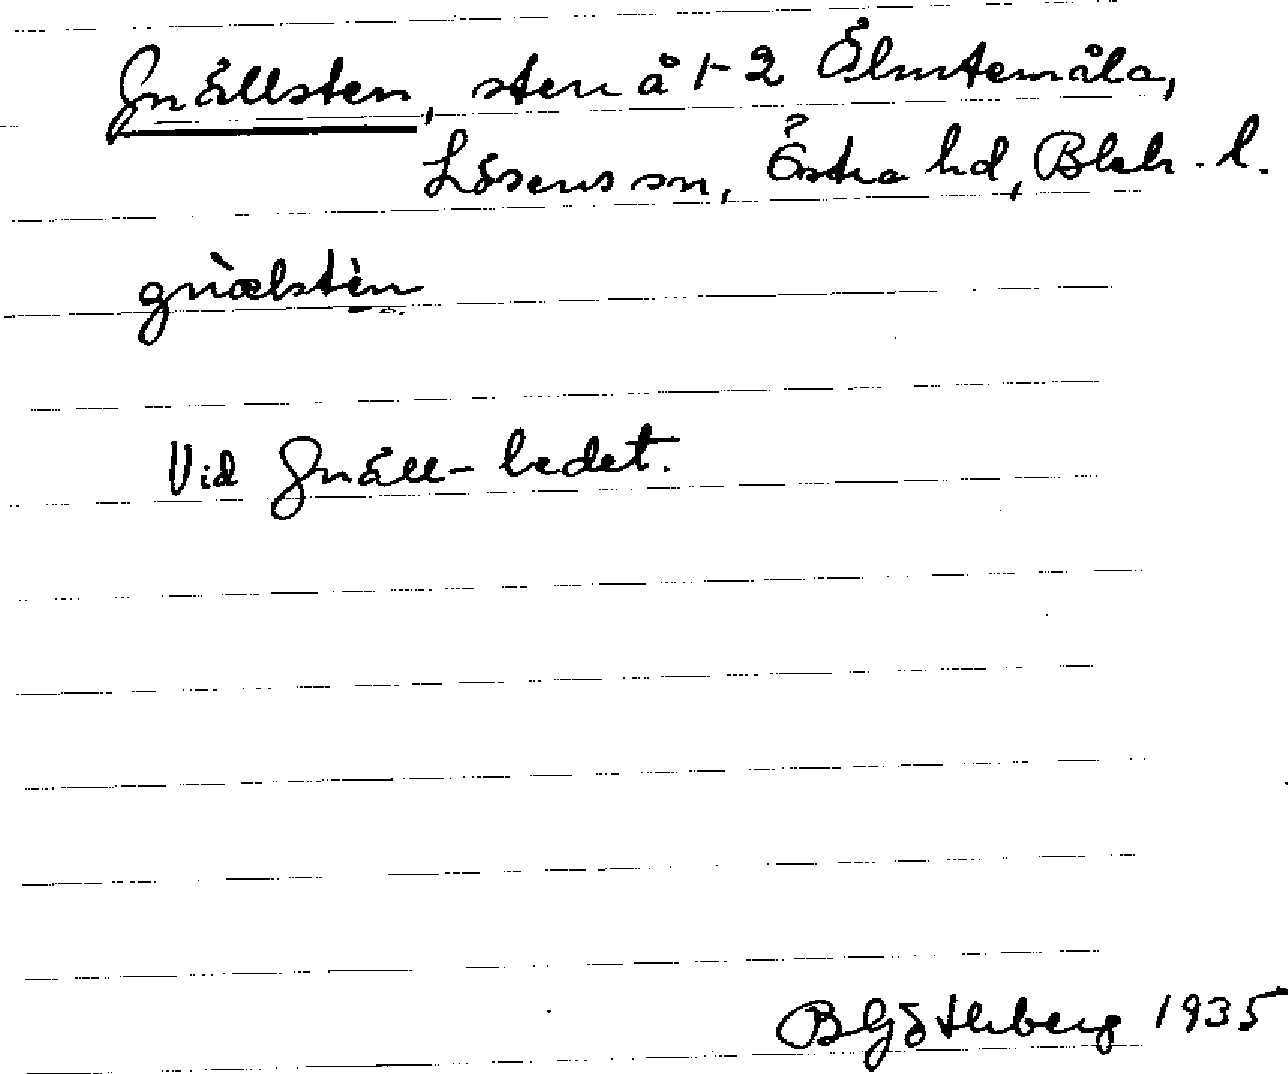 Gnällsten, sten å 1-2 Ölmtemåla,
Lösens sn, Östra hd, Blek. l.
gnæ̀lstèn
Vid Gnäll-ledet.
B Götlberg 1935